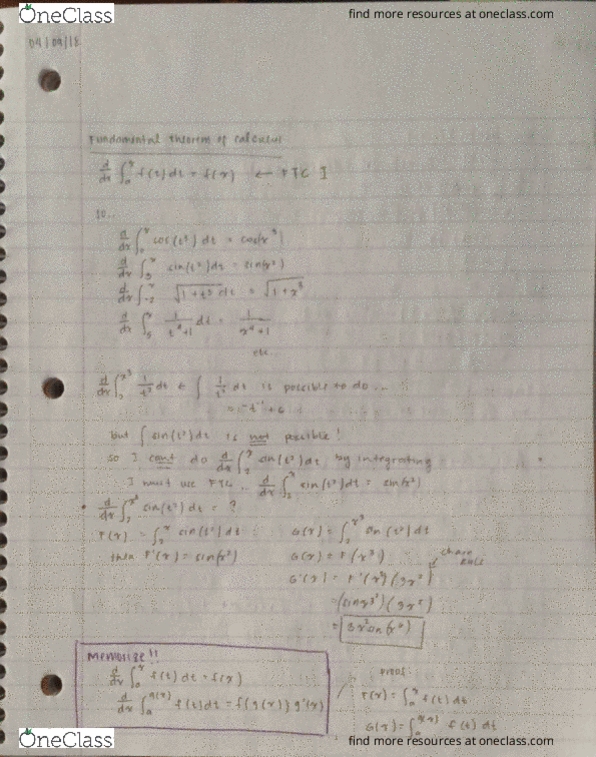 OneClass
find more resources at oneclass.com
04/09/18
Fundamental Theorem of Calculus
d/dx ∫_a^x f(t) dt = f(x) ← FTC I
so..
d/dx ∫^x cos(t³) dt = cos(x³)
d/dx ∫_3^x sin(t²) dt = sin(x²)
d/dx ∫_-2^x √(1+t³) dt = √(1+x³)
d/dx ∫_5^x 1/(t⁴+1) dt = 1/(x⁴+1)
etc..
d/dx ∫_2^(x³) 1/t² dt ← ∫ 1/t² dt is possible to do...
= -t⁻¹ + c
but ∫ sin(t²) dt is not possible!
so I cant do d/dx ∫_2^x sin(t²) dt by integrating
I must use FTC... d/dx ∫_2^x sin(t²) dt = sin(x²)
d/dx ∫_2^(x³) sin(t²) dt = ?
F(x) = ∫_2^x sin(t²) dt
then F'(x) = sin(x²)
G(x) = ∫_2^(x³) sin(t²) dt
G(x) = F(x³)
chain rule
G'(x) = F'(x³)(3x²)
= 3x² sin(x⁶)
Memorize!!
d/dx ∫_a^x f(t) dt = f(x)
d/dx ∫_a^(g(x)) f(t) dt = f(g(x)) g'(x)
Proof:
F(x) = ∫_a^x f(t) dt
G(x) = ∫_a^(g(x)) f(t) dt
OneClass
find more resources at oneclass.com